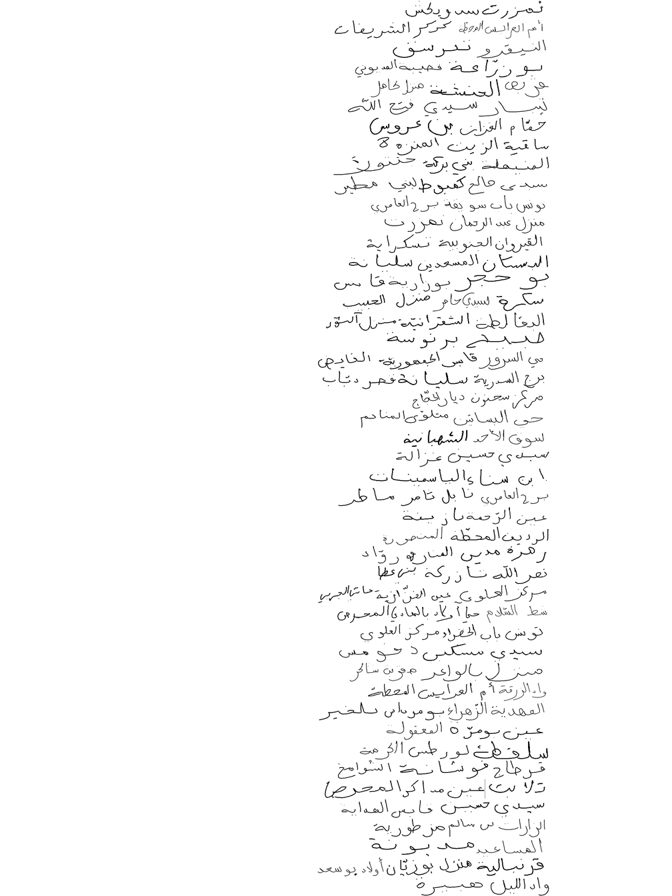 تمزرت سد ويحش
أم العرائس المحطة مركز الشريفات
النيقرو تبرسق
بو زراعة قصيبة المديوني
الحنشة منزل كامل
نيبار سيدي فرج الله
حمام الغزاز بن عروس
ساقية الزيت المنزه 8
المنيهلة بني بركة خنتون
سيدي صالح كعبوط لبني مطير
تونس باب سويقة برج العامري
منزل عبد الرحمان تمزرت
القيروان الجنوبية تسكراية
البستان المسعدين سليانة
بو حجر بورادية قابس
سكرة سيدي عامر منزل الحبيب
البقالطة الشعرانية منزل النور
خبيب برنوسة
حي السرور قابس الجمهورية الفايض
برج السدرية سليانة قصر دباب
مركز سحنون ديار الحجاج
حي البساتين ملتقى المناجم
سوق الأحد الشهبانية
سيدي حسين غزالة
ابن سناء الياسمينات
برج العامري نابل تامر ماطر
عين الرحمة نازينة
الرديف المحطة المنصورة
زهرة مدين المنارة رواد
نصر الله تازركة بني عطا
مركز العلوي عين الغزازية
شط السلام حي أولاد بالهادي المحرص
تونس باب الخضراء مركز العلوي
سيدي مسكين دخومس
منزل بالواعر صفر بن سالم
واد الزرقة أم العرايس المحطة
المهدية الزهراء بومرداس بلخير
عين بومرة المعقولة
سلقطة لورطس الكرمة
قرطاج فوشانة الشوامخ
تلابت عين مذاكر المحرصا
سيدي حسين قابس الهداية
الزارات بن سالم مزطورية
المساعيد مديونة
قرنبالية منزل بوزيان أولاد بوسعد
واد الليل هبيرة